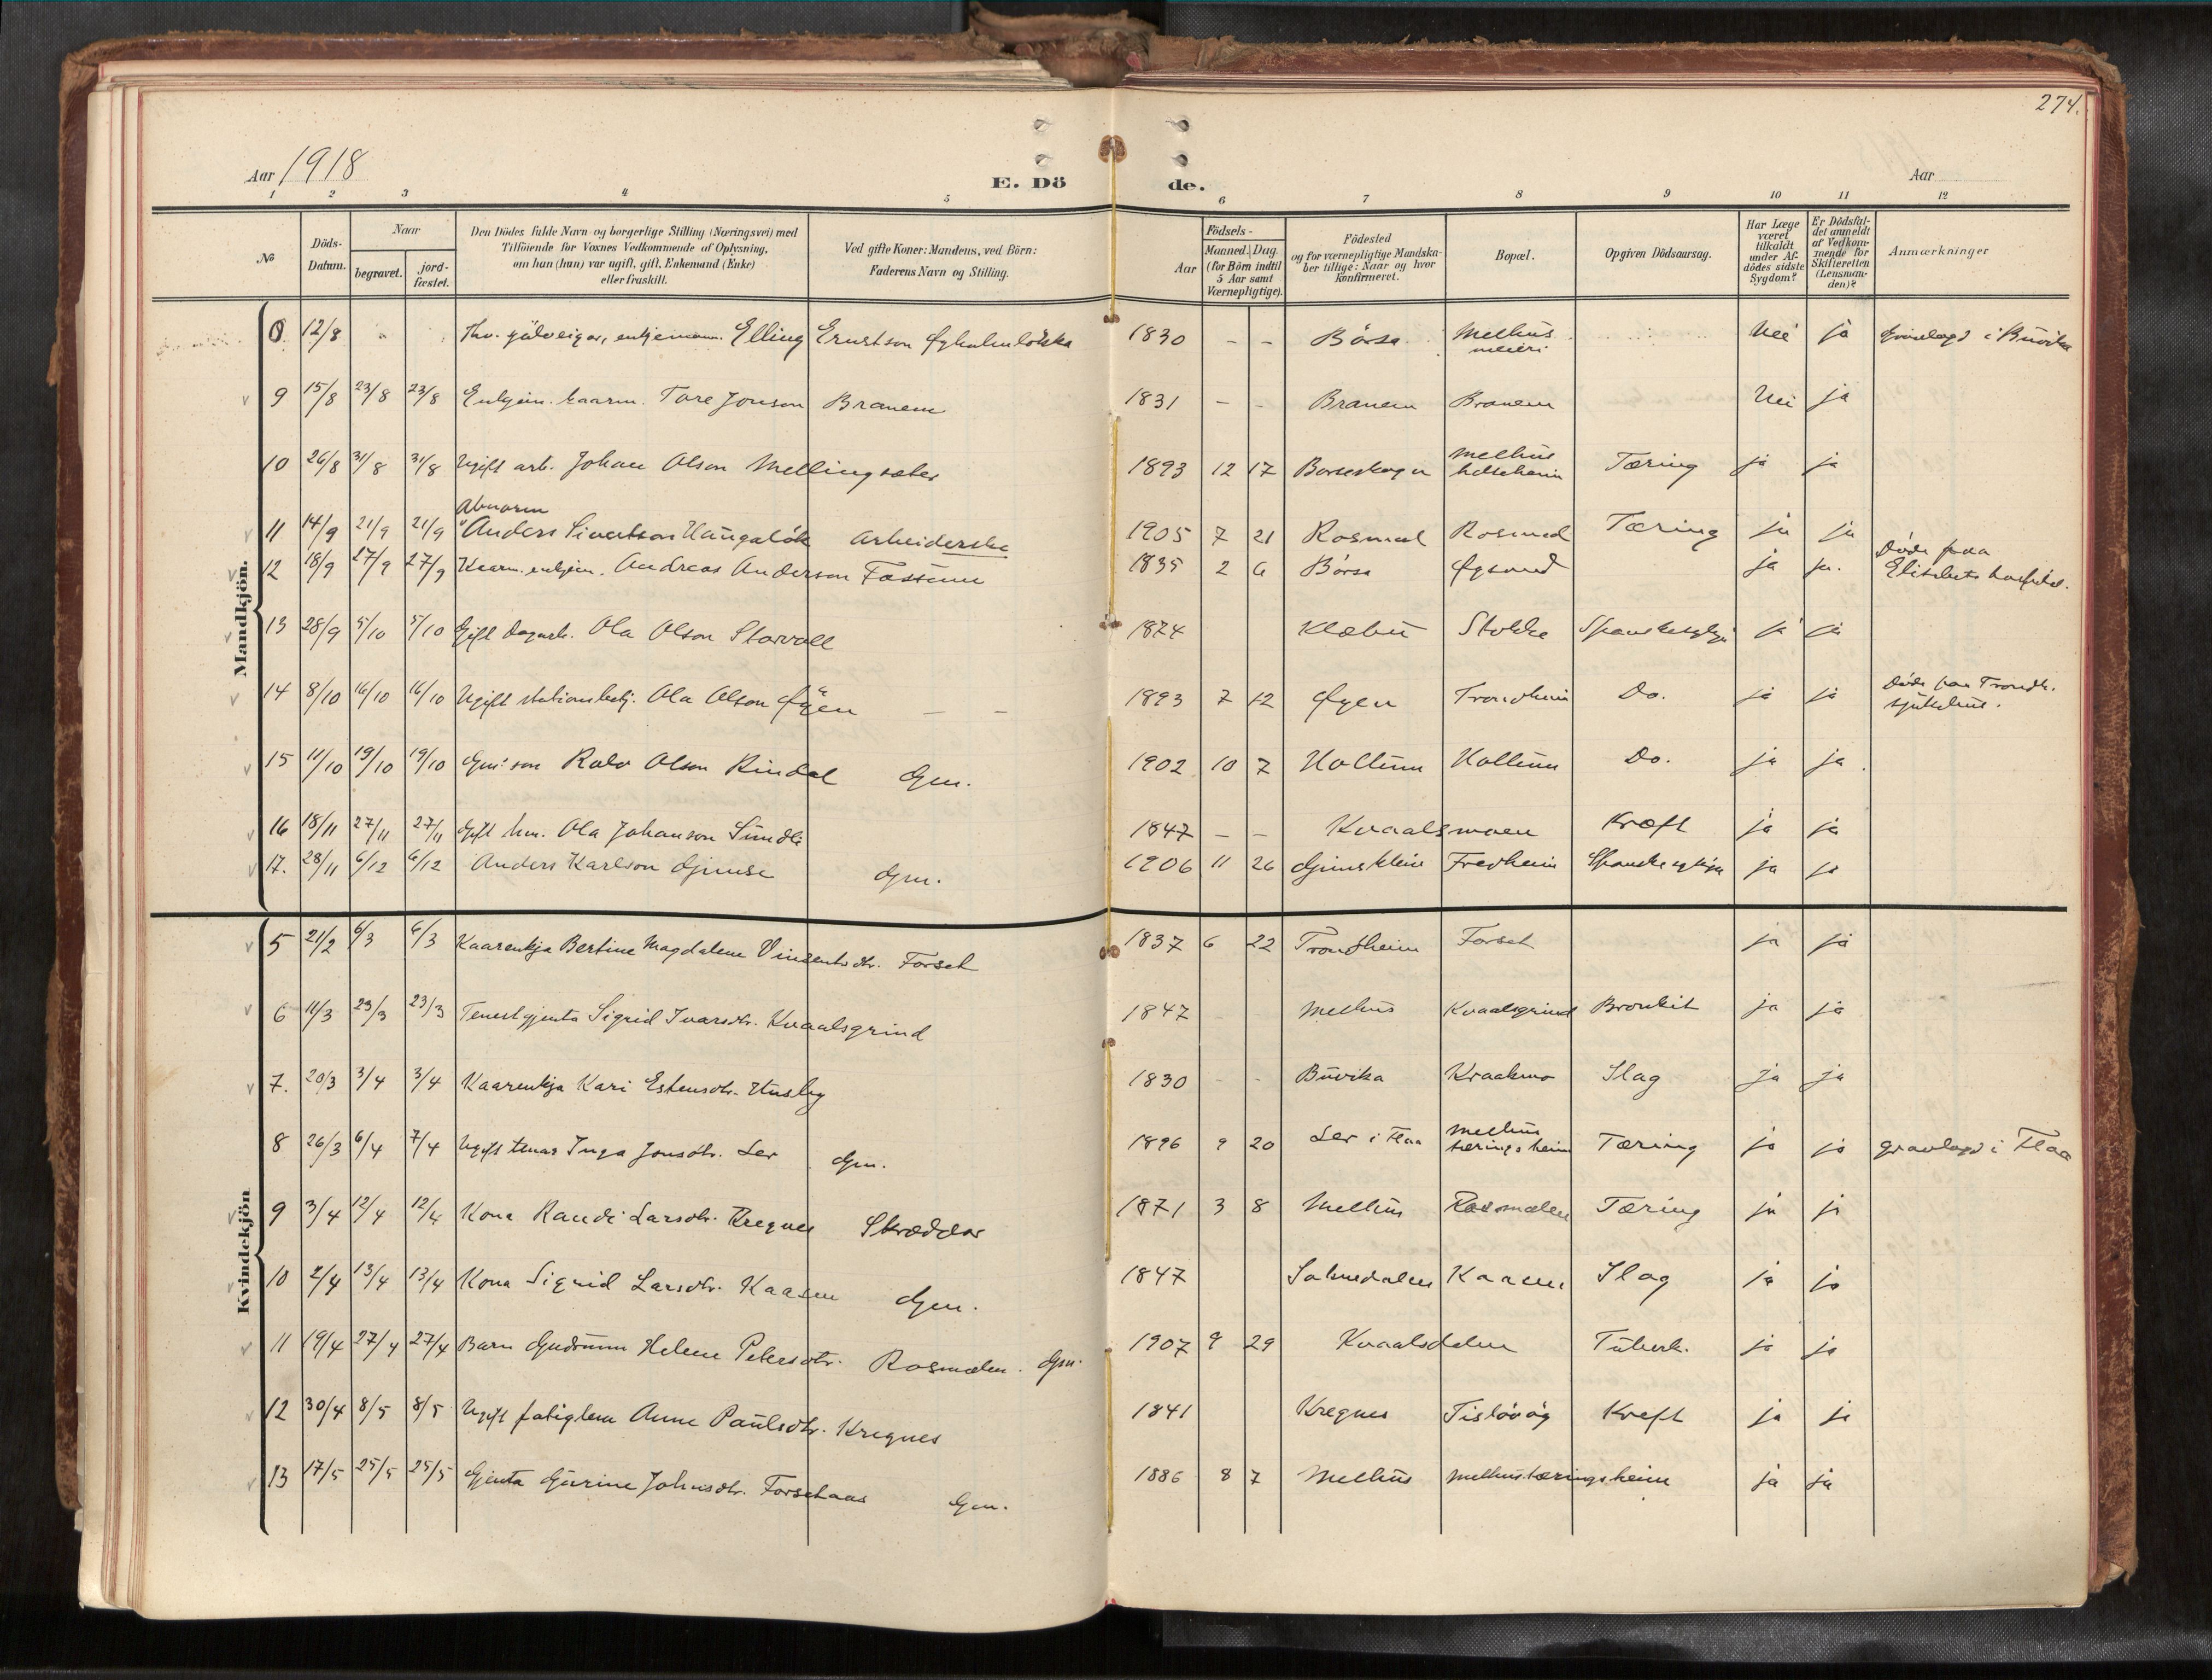 274.
Aar 1918
E. Dö de.
Aar
1 2 3 4 5 6 7 8 9 10 11 12
No
Döds-Datum.
Naar
begravet.
jord-fæstet.
Den Dödes fulde Navn og borgerlige Stilling (Næringsvei) med
Tilföiende for Voxnes Vedkommende af Oplysning,
om han (hun) var ugift, gift, Enkemand (Enke)
eller fraskilt.
Ved gifte Koner: Mandens, ved Börn:
Faderens Navn og Stilling.
Födsels-
Aar
Maaned. Dag.
(for Börn indtil
5 Aar samt
Værnepligtige).
Födested
og for værnepligtige Mandska-
ber tillige: Naar og hvor
konfirmeret.
Bopæl.
Opgiven Dödsaarsag.
Har Læge
været
tilkaldt
under Af-
dödes sidste
Sygdom?
Er Dödsfal-
det anmeldt
af Vedkom-
mende for
Skifteretten
(Lensman-
den)?
Anmærkninger
Mandkjön.
8. 12/8 Elling Ernstson 1830 – – Börsa Melhus meieri Nei ja gravlagd i Buvika
9 15/8 23/8 23/8 Enkjem. kaarm. Tore Jonson Branem 1831 – – Branem Branem Nei ja
10 26/8 31/8 31/8 Ugift arb. Johan Olson Mellingsæter 1893 12 17 Børseskogn Melhus Tæring ja ja
Abnorm
11 14/9 21/9 21/9 Anders Sivertson Haugaløk arbeiderske 1905 7 21 Rosmæl Rosmæl Tæring ja ja
12 18/9 27/9 27/9 Kaarm. enkjem. Andreas Anderson Fossum 1835 2 6 Börsa Øysand ja ja. Døde paa Elisabets hospital.
13 28/9 5/10 5/10 Gift dagarb. Ola Olson Storvoll 1874 Klæbu Stokke ja ja
14 8/10 16/10 16/10 Ugift stationsbetj. Ola Olson Øyen – – 1893 7 12 Øyen Trondheim Do. ja ja Døde paa Trondh. sjukehus.
15 11/10 19/10 19/10 Gm. son Rolv Olson Rindal Gm. 1902 10 7 Hollum Hollum Do. ja ja
16 18/11 27/11 27/11 Gift hm. Ola Johanson Sundli 1847 – – Kvaalsmoen Kræft ja ja
17. 28/11 6/12 6/12 Anders Karlson Gjimse Gm. 1906 11 26 Fredheim ja ja
Kvindekjön
5 21/2 6/3 6/3 Kaarenkja Bertine Magdalene Vinsentsdtr. Forset 1837 6 22 Trondheim Forset ja ja
6 11/3 23/3 23/3 Tenestgjenta Sigrid Ivarsdtr. Kvaalsgrind 1847 Melhus Kvaalsgrind Bronkit ja ja
7. 20/3 3/4 3/4 Kaarenkja Kari Estensdtr. Husby 1830 – – Buvika Kvaalsmo Slag ja ja
8 26/3 6/4 7/4 Ugift tenar Inga Jonsdtr. Ler Gm. 1896 9 20 Ler i Flaa Melhus tæringsheim Tæring ja ja gravlagd i Flaa
9 3/4 12/4 12/4 Kona Randi Larsdtr. Kregnes Skræddar 1871 3 8 Melhus Rosmælen Tæring ja ja
10 2/4 13/4 13/4 Kona Sigrid Larsdtr. Kaasen Gm. 1847 Soknedalen Kaasen Slag ja ja
11 19/4 27/4 27/4 Barn Gudrunn Helene Petersdtr. Rosmælen. Gm. 1907 9 29 Kvaalsdalen Tuberk. ja ja
12 30/4 8/5 8/5 Ugift fatiglem Anne Paulsdtr. Kregnes 1841 Kregnes Kreft ja ja
13 17/5 25/5 25/5 Gjenta Gurine Johnsdtr. Forsetaas Gm. 1886 8 7 Melhus Melhus tæringsheim ja ja